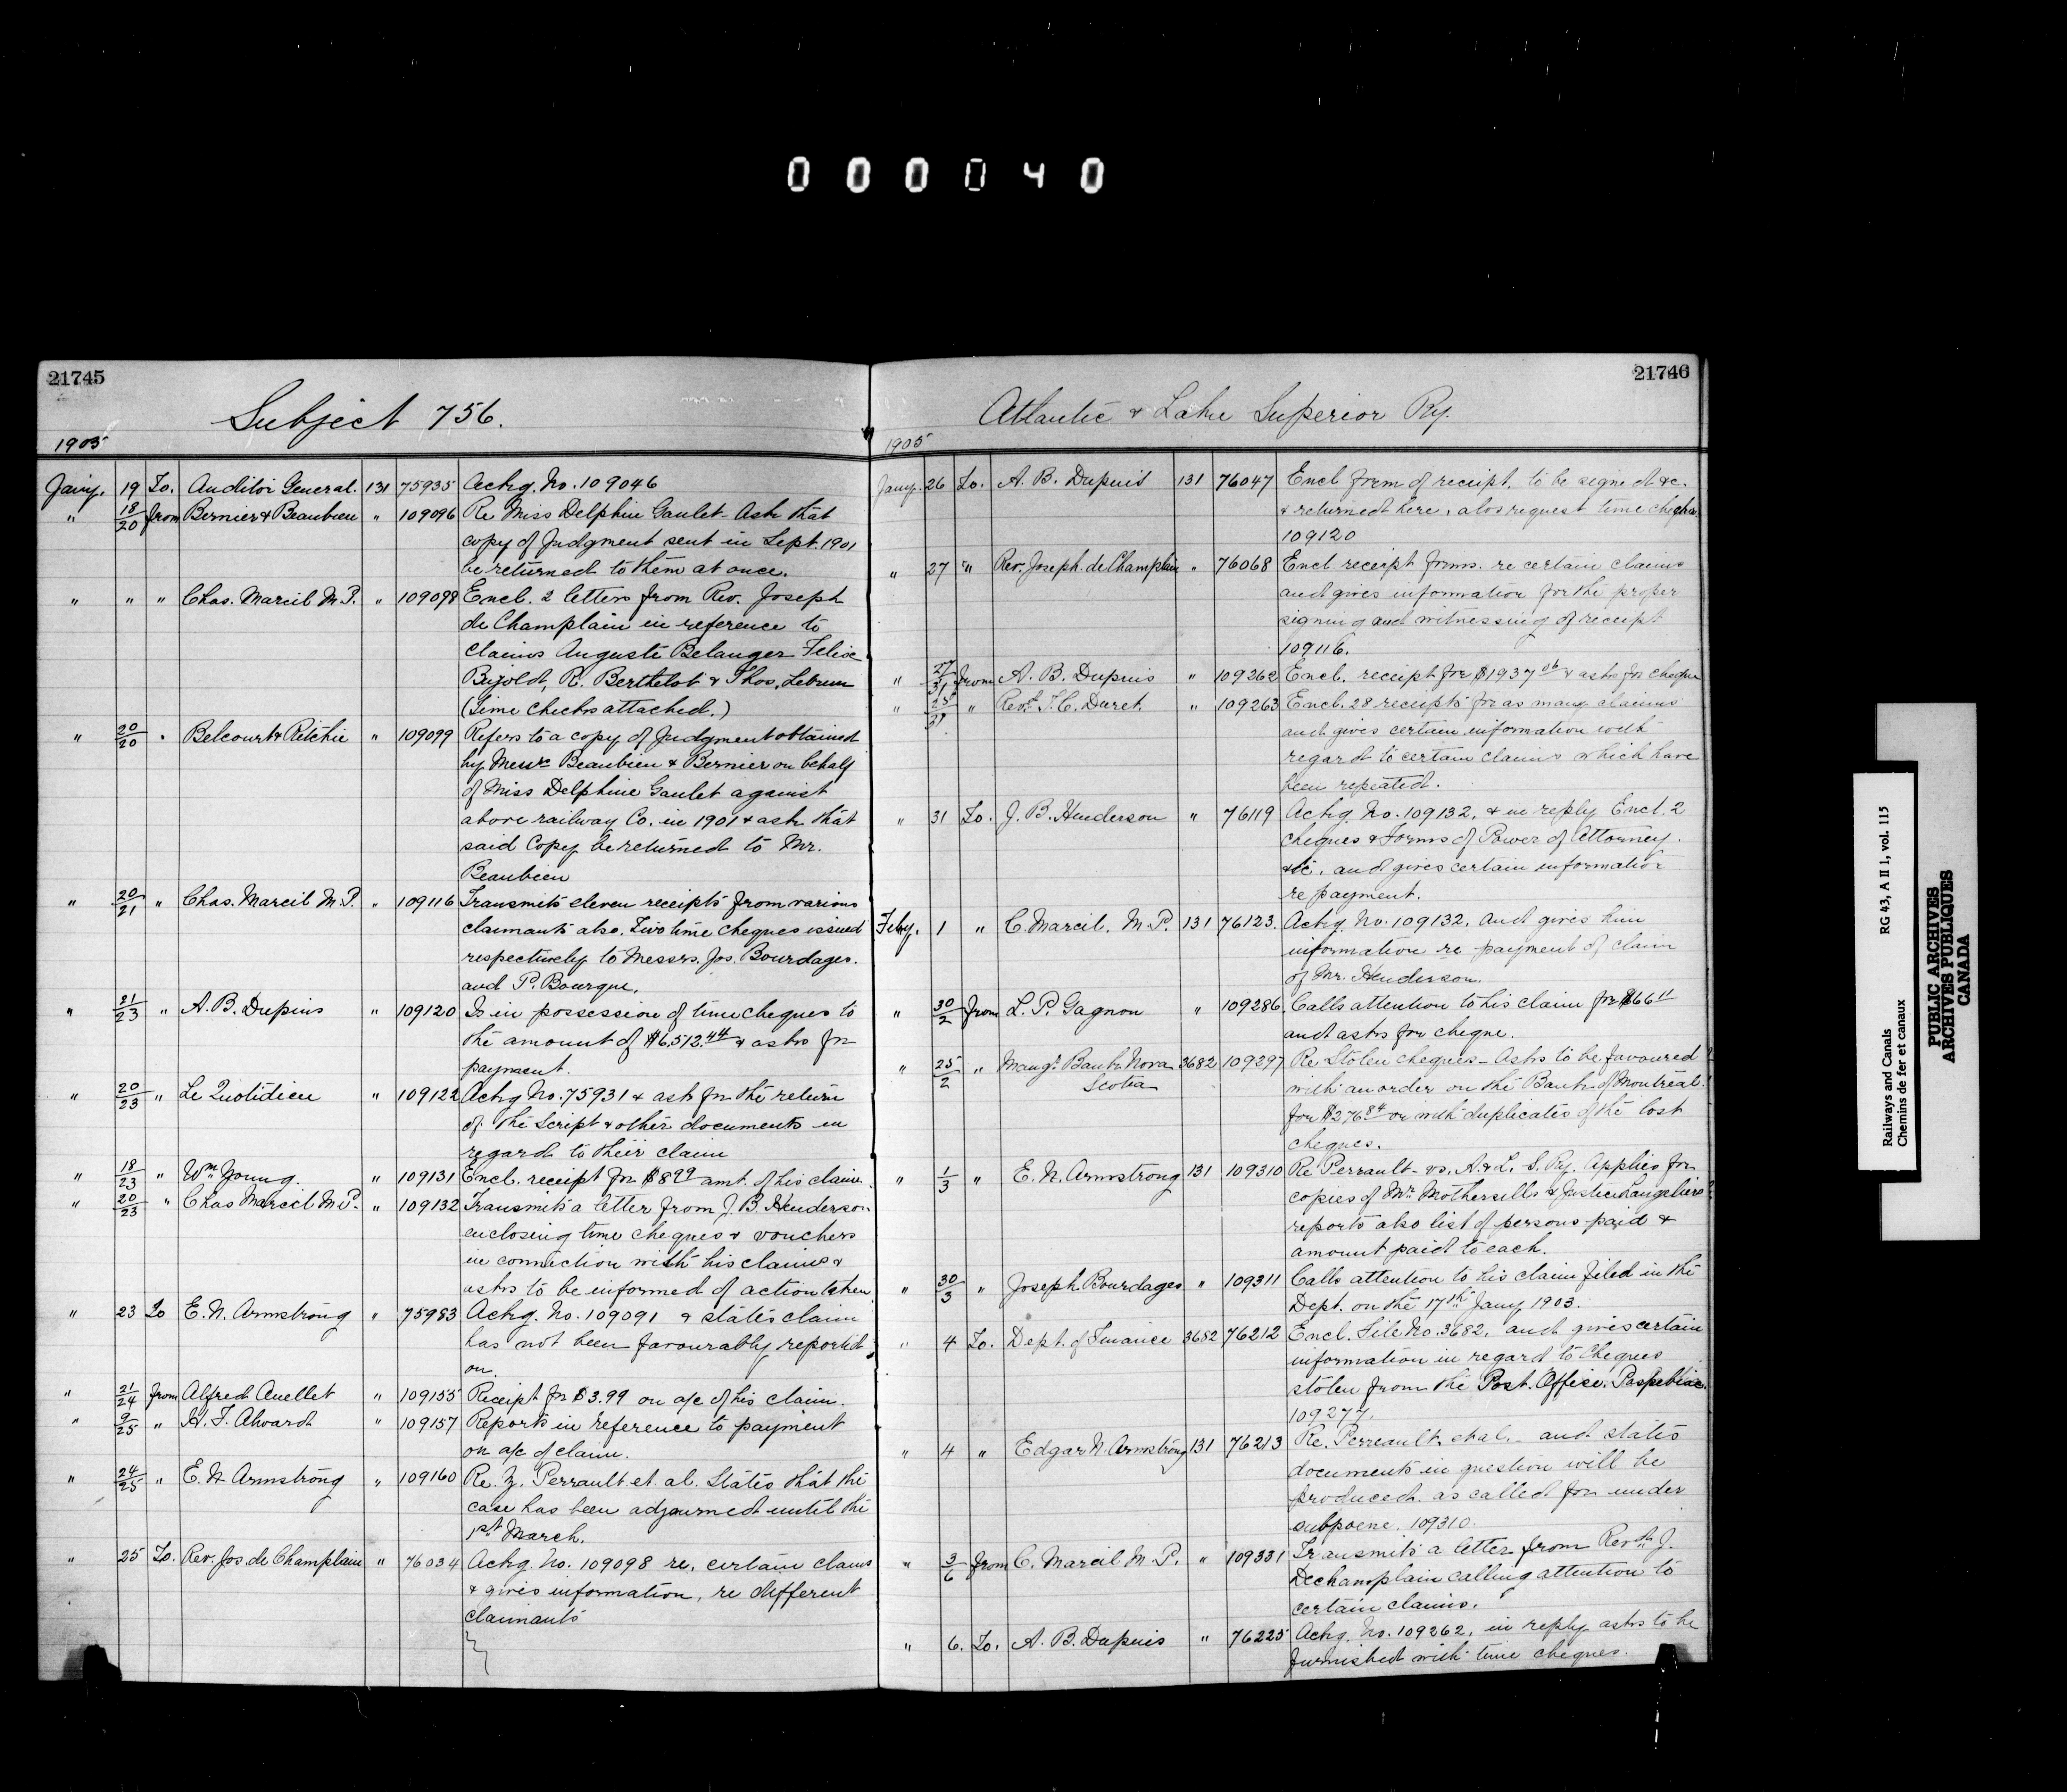 000040
21745
Subject 756.
1905
Jany. 19 To. Auditor General. 131 75935 Ackg. No. 109046
" 18/20 from Bernier & Beaubien " 109096 Re Miss Delphine Gaulet - Ask that
copy of Judgment sent in Sept. 1901
be returned to them at once.
" " " Chas. Marcil M.P. " 109098 Encl. 2 letters from Rev. Joseph
de Champlain in reference to
claims Auguste Belanger Felix
Bujold, R. Berthelot & Thos. Lebrun
(time checks attached.)
" 20/20 " Belcourt & Ritchie " 109099 Refers to a copy of Judgment obtained
by Messrs Beaubien & Bernier on behalf
of Miss Delphine Gaulet against
above railway Co. in 1901 & ask that
said Copy be returned to Mr.
Beaubien
" 20/21 " Chas. Marcil M.P. " 109116 Transmits eleven receipts from various
claimants also. Two time cheques issued
respectively to Messrs. Jos. Bourdages.
and P. Bourque.
" 21/23 " A. B. Dupuis " 109120 Is in possession of time cheques to
the amount of $6,512.44 & asks for
payment.
" 20/23 " Le Quotidien " 109122 Ackg No. 75931 & ask for the return
of the Script & other documents in
regard to their claim
" 18/23 " Wm Young. " 109131 Encl. receipt for $8.99 amt. of his claim.
" 20/23 " Chas Marcil M.P. " 109132 Transmits a letter from J. B. Henderson
enclosing time cheques & vouchers
in connection with his claims &
asks to be informed of action taken.
" 23 To E. N. Armstrong " 75983 Ackg. No. 109091 & states claim
has not been favourably reported
on.
" 21/24 from Alfred Ouellet " 109155 Receipt for $3.99 on a/c of his claim.
" 9/25 " H. F. Alward " 109157 Reports in reference to payment
on a/c of claim.
" 24/25 " E. N Armstrong " 109160 Re. Z. Perrault et al. States that the
case has been adjourned until the
1st March.
" 25 To. Rev. Jos. de Champlain " 76034 Ackg. No. 109098 re. certain claims
& gives information, re different
claimants
21746
Atlantic & Lake Superior Ry.
1905
Jany. 26 To. A. B. Dupuis 131 76047 Encl form of receipt, to be signed &c.
& returned here, alos request time cheqhs.
109120
" 27 " Rev. Joseph. de Champlain " 76068 Encl. receipt forms. re certain claims
and gives information for the proper
signing and witnessing of receipt
109116.
" 27/31 from A. B. Dupuis " 109262 Encl. receipt for $1937.06 & asks for cheque
" 28/31 " Revd. T. C. Duret. " 109263 Encl. 28 receipts for as many claims
and gives certain information with
regard to certain claims which have
been repeated.
" 31 To. J. B. Henderson " 76119 Ackg. No. 109132, & in reply Encl. 2
cheques & Forms of Power of Attorney.
&c. and gives certain information
re payment.
Feby. 1 " C. Marcil. M.P. 131 76123. Ackg. No. 109132, and gives him
information re payment of claim
of Mr. Henderson.
" 30/2 from L. P. Gagnon " 109286 Calls attention to his claim for $66.11
and asks for cheque.
" 25/2 " Mangr Bank Nova 3682 109297 Re Stolen cheques - Asks to be favoured
Scotia with an order on the Bank of Montreal
for $276.84 or with duplicates of the lost
cheques.
" 1/3 " E. N. Armstrong 131 109310 Re Perrault - vs. A. & L. S. Ry. Applies for
copies of Mr Mothersills & Justice Langeliers
reports also list of persons paid &
amount paid to each.
" 30/3 " Joseph Bourdages " 109311 Calls attention to his claim filed in the
Dept. on the 17th Jany 1903.
" 4 To. Dept. of Finance 3682 76212 Encl. File No. 3682, and gives certain
information in regard to Cheques
stolen from the Post. Office. Paspebiac.
109277.
" 4 " Edgar N. Armstrong 131 76213 Re. Perreault. et al. - and states
documents in question will be
produced. as called for under
subpoene. 109310.
" 3/6 from C. Marcil M.P. " 109331 Transmits a letter from Revd. J.
Dechamplain calling attention to
certain claims.
" 6. To. A. B. Dupuis " 76225 Ackg. No. 109262, in reply asks to be
furnished with time cheques.
Railways and Canals RG 43, A II 1, vol. 115
Chemins de fer et canaux
PUBLIC ARCHIVES
ARCHIVES PUBLIQUES
CANADA